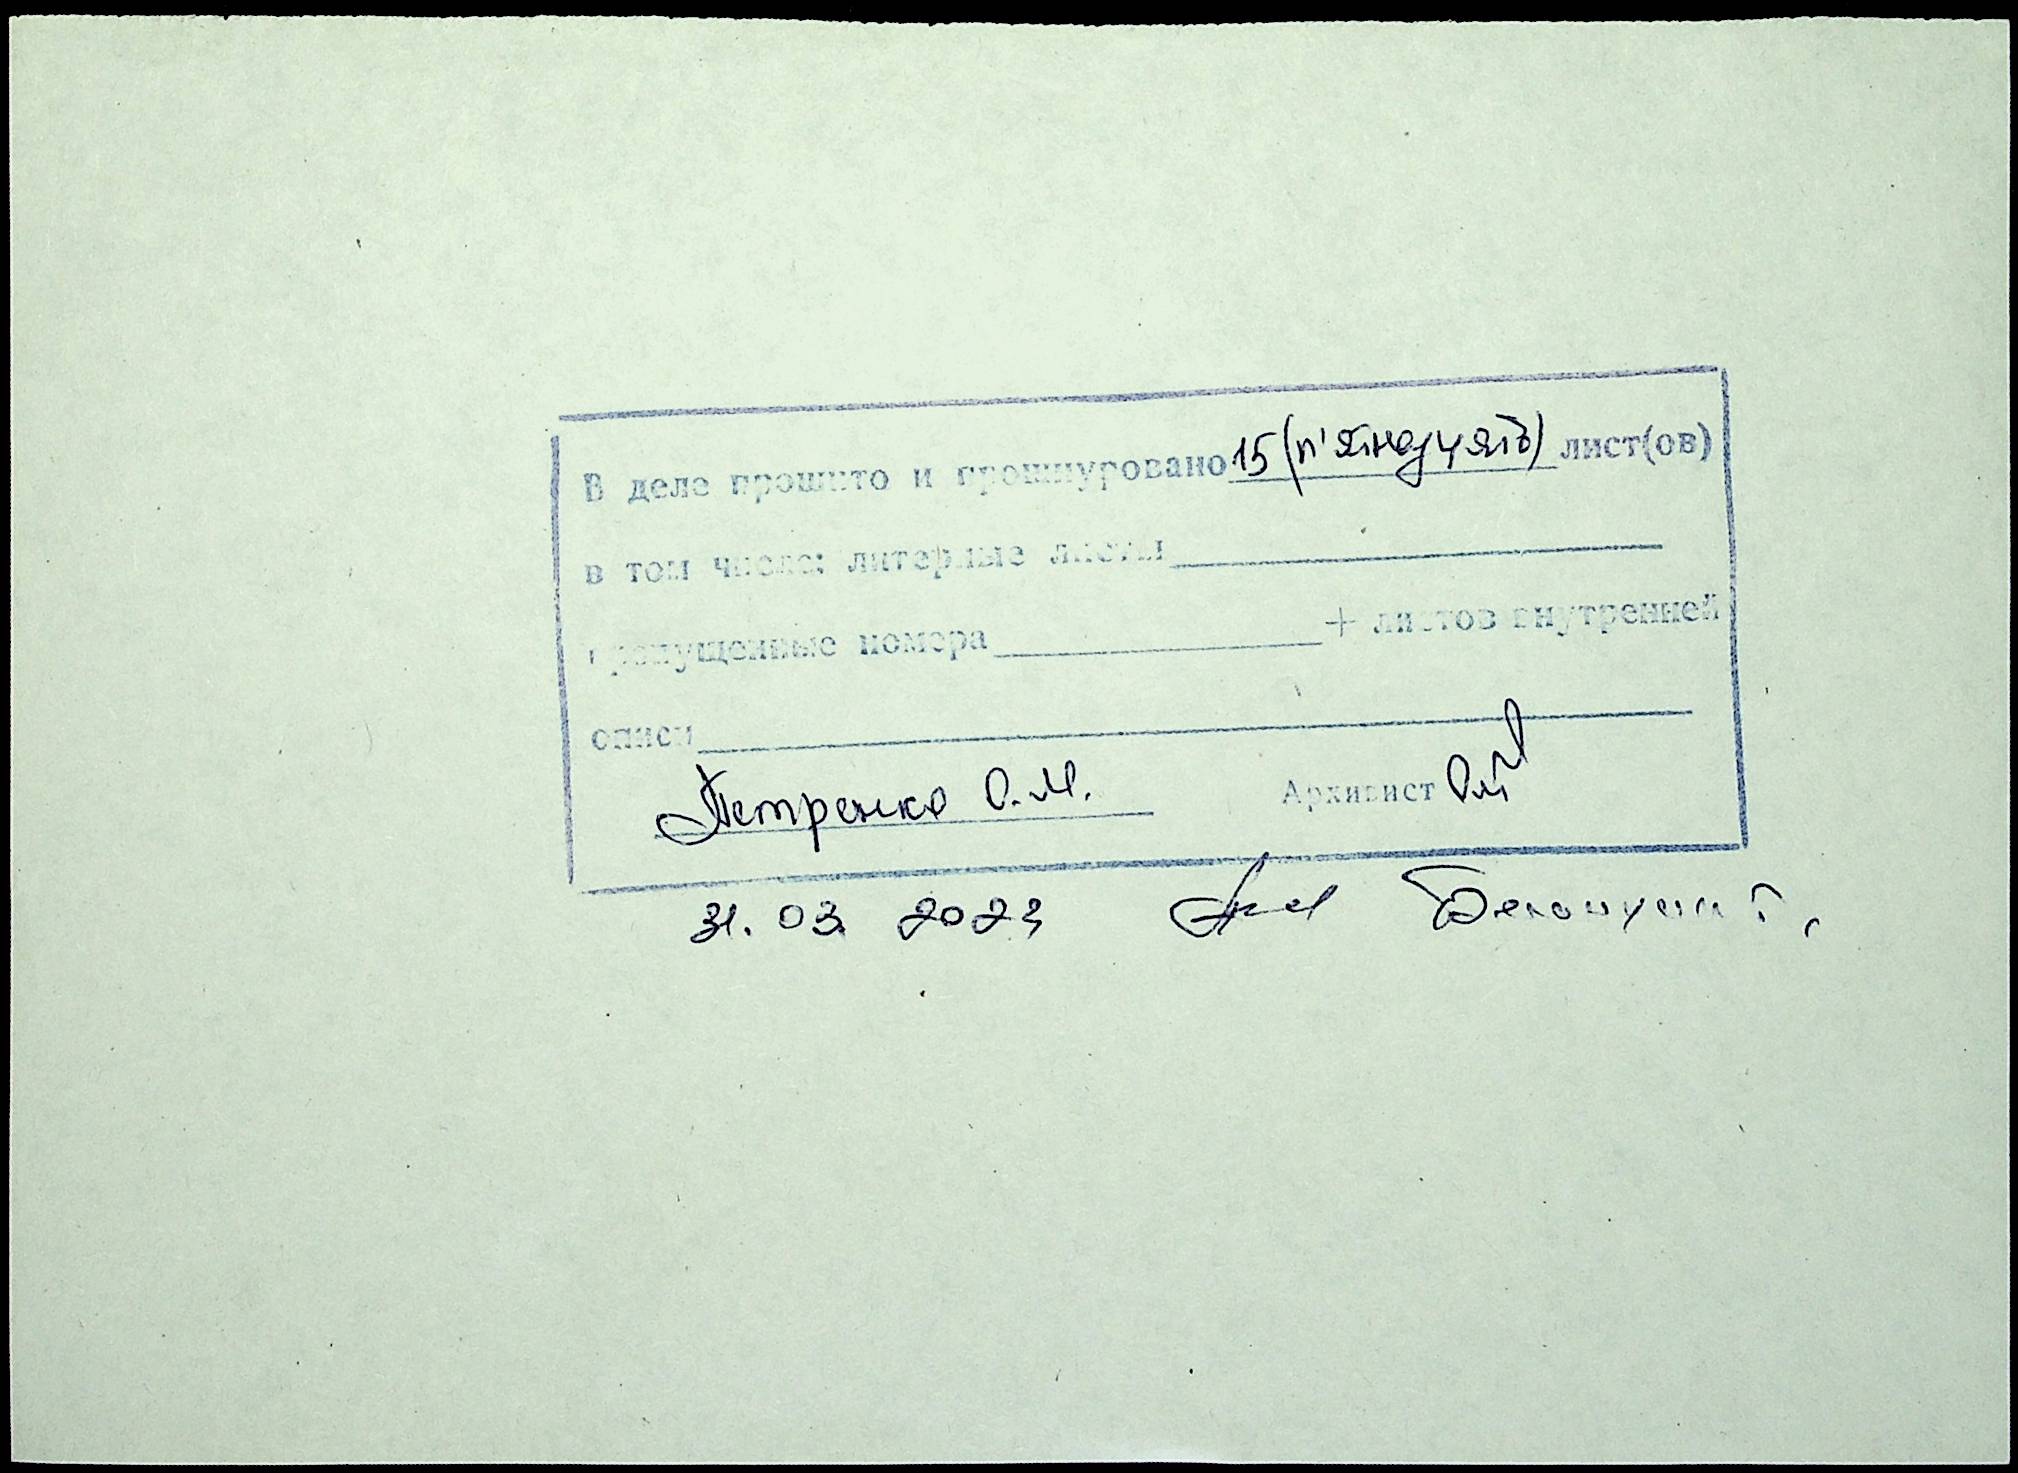 В деле прошито и прошнуровано 15 (п'ятнадцять) лист(ов)
в том числе: литерные листы
пропущенные номера + листов внутренней
описи
Петренко О.М. Архивист
31.03.2023